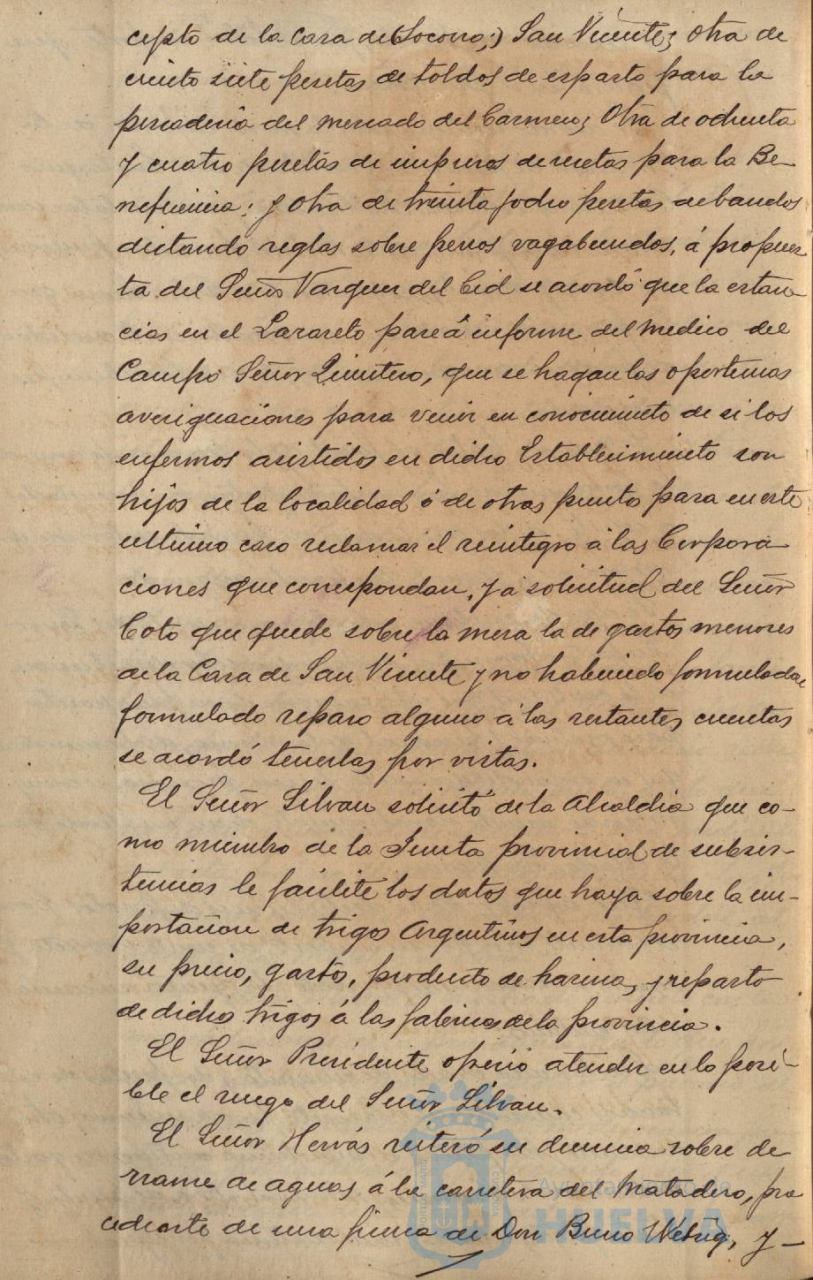 cepto de la Casa de Socorro;) San Vicente; Otra de
ciento siete pesetas de toldos de esparto para la
pescaderia del mercado del Carmen; Otra de ochenta
y cuatro pesetas de impresos de recetas para la Be-
neficencia; y otra de treinta y ocho pesetas de bandos
dictando reglas sobre perros vagabundos, á propues-
ta del Señor Vazquez del Cid se acordó que la estan-
cias en el Lazareto pase á informe del medico del
Campo Señor Quintero, que se hagan las oportunas
averiguaciones para venir en conocimiento de si los
enfermos asistidos en dicho Establecimiento son
hijos de la localidad ó de otros punto para en este
ultimo caso reclamar el reintegro á las Corpora
ciones que correspondan, y á solicitud del Señor
Coto que quede sobre la mesa la de gastos menores
de la Casa de San Vicente y no habiendo formulado
formulado reparo alguno á las restantes cuentas
se acordó tenerlas por vistas.
El Señor Silvan solicitó de la Alcaldia que co-
mo miembro de la Junta provincial de subsis-
tencias le facilite los datos que haya sobre la im-
portacion de trigos Argentinos en esta provincia,
su precio, gasto, producto de harina, y reparto
de dichos trigos á las fabricas de la provincia.
El Señor Presidente ofreció atender en lo posi-
ble el ruego del Señor Silvan.
El Señor Hervás reiteró su denuncia sobre de
rrame de aguas á la carretera del Matadero, pro
cedente de una finca de Don Bruno y-
Ayuntamiento de
HUELVA